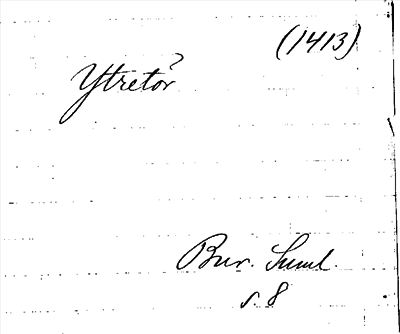 (1413)
Ytretor?
Bur. Suml.
s. 8